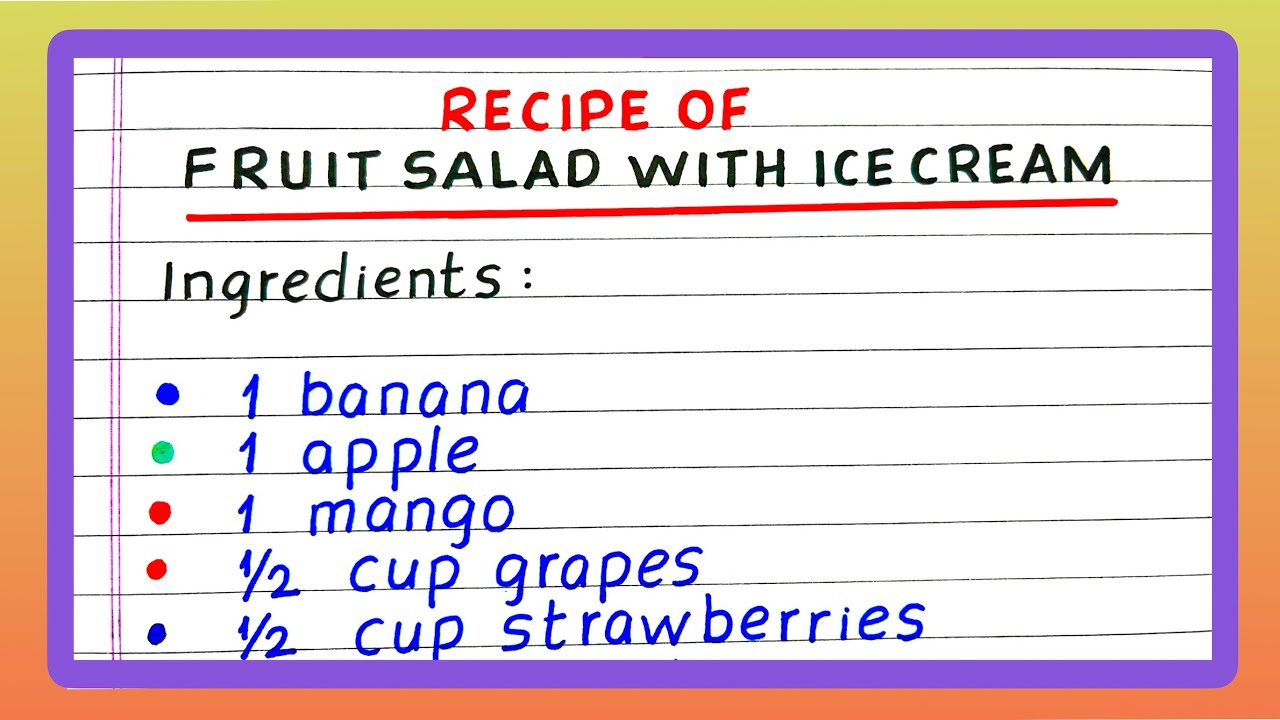 RECIPE OF
FRUIT SALAD WITH ICE CREAM
Ingredients :
• 1 banana
• 1 apple
• 1 mango
• 1/2 cup grapes
• 1/2 cup strawberries